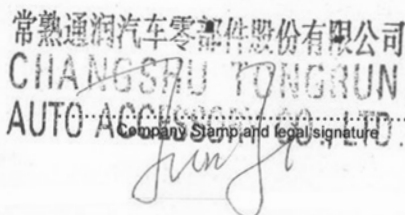 常熟通润汽车零部件股份有限公司
CHANGSHU TONGRUN
AUTO ACCESSORY CO., LTD.
Company Stamp and legal signature